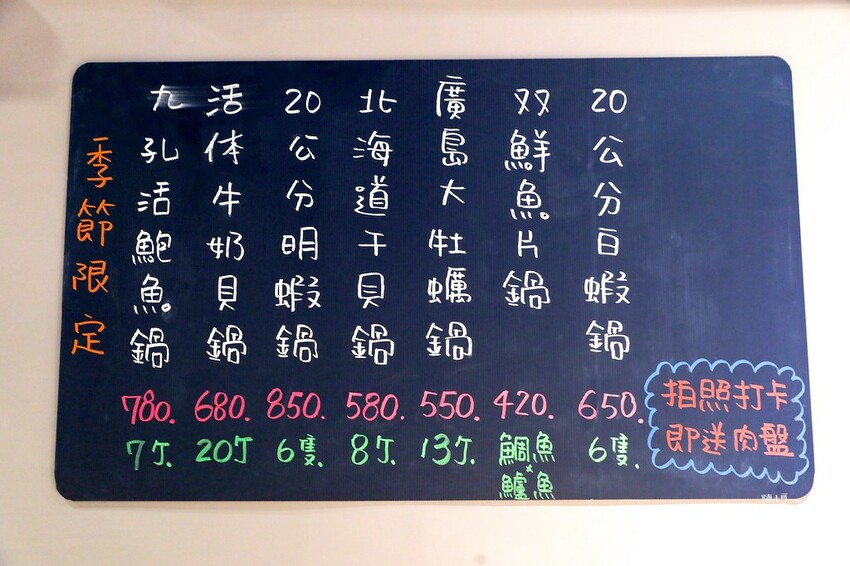 季節限定
九孔活鮑魚鍋
780.
7丁.
活体牛奶貝鍋
680.
20丁
20公分明蝦鍋
850.
6隻.
北海道干貝鍋
580.
8丁.
廣島大牡蠣鍋
550.
13丁.
双鮮魚片鍋
420.
鯛魚
×
鱸魚
20公分白蝦鍋
650.
6隻.
拍照打卡
即送肉盤